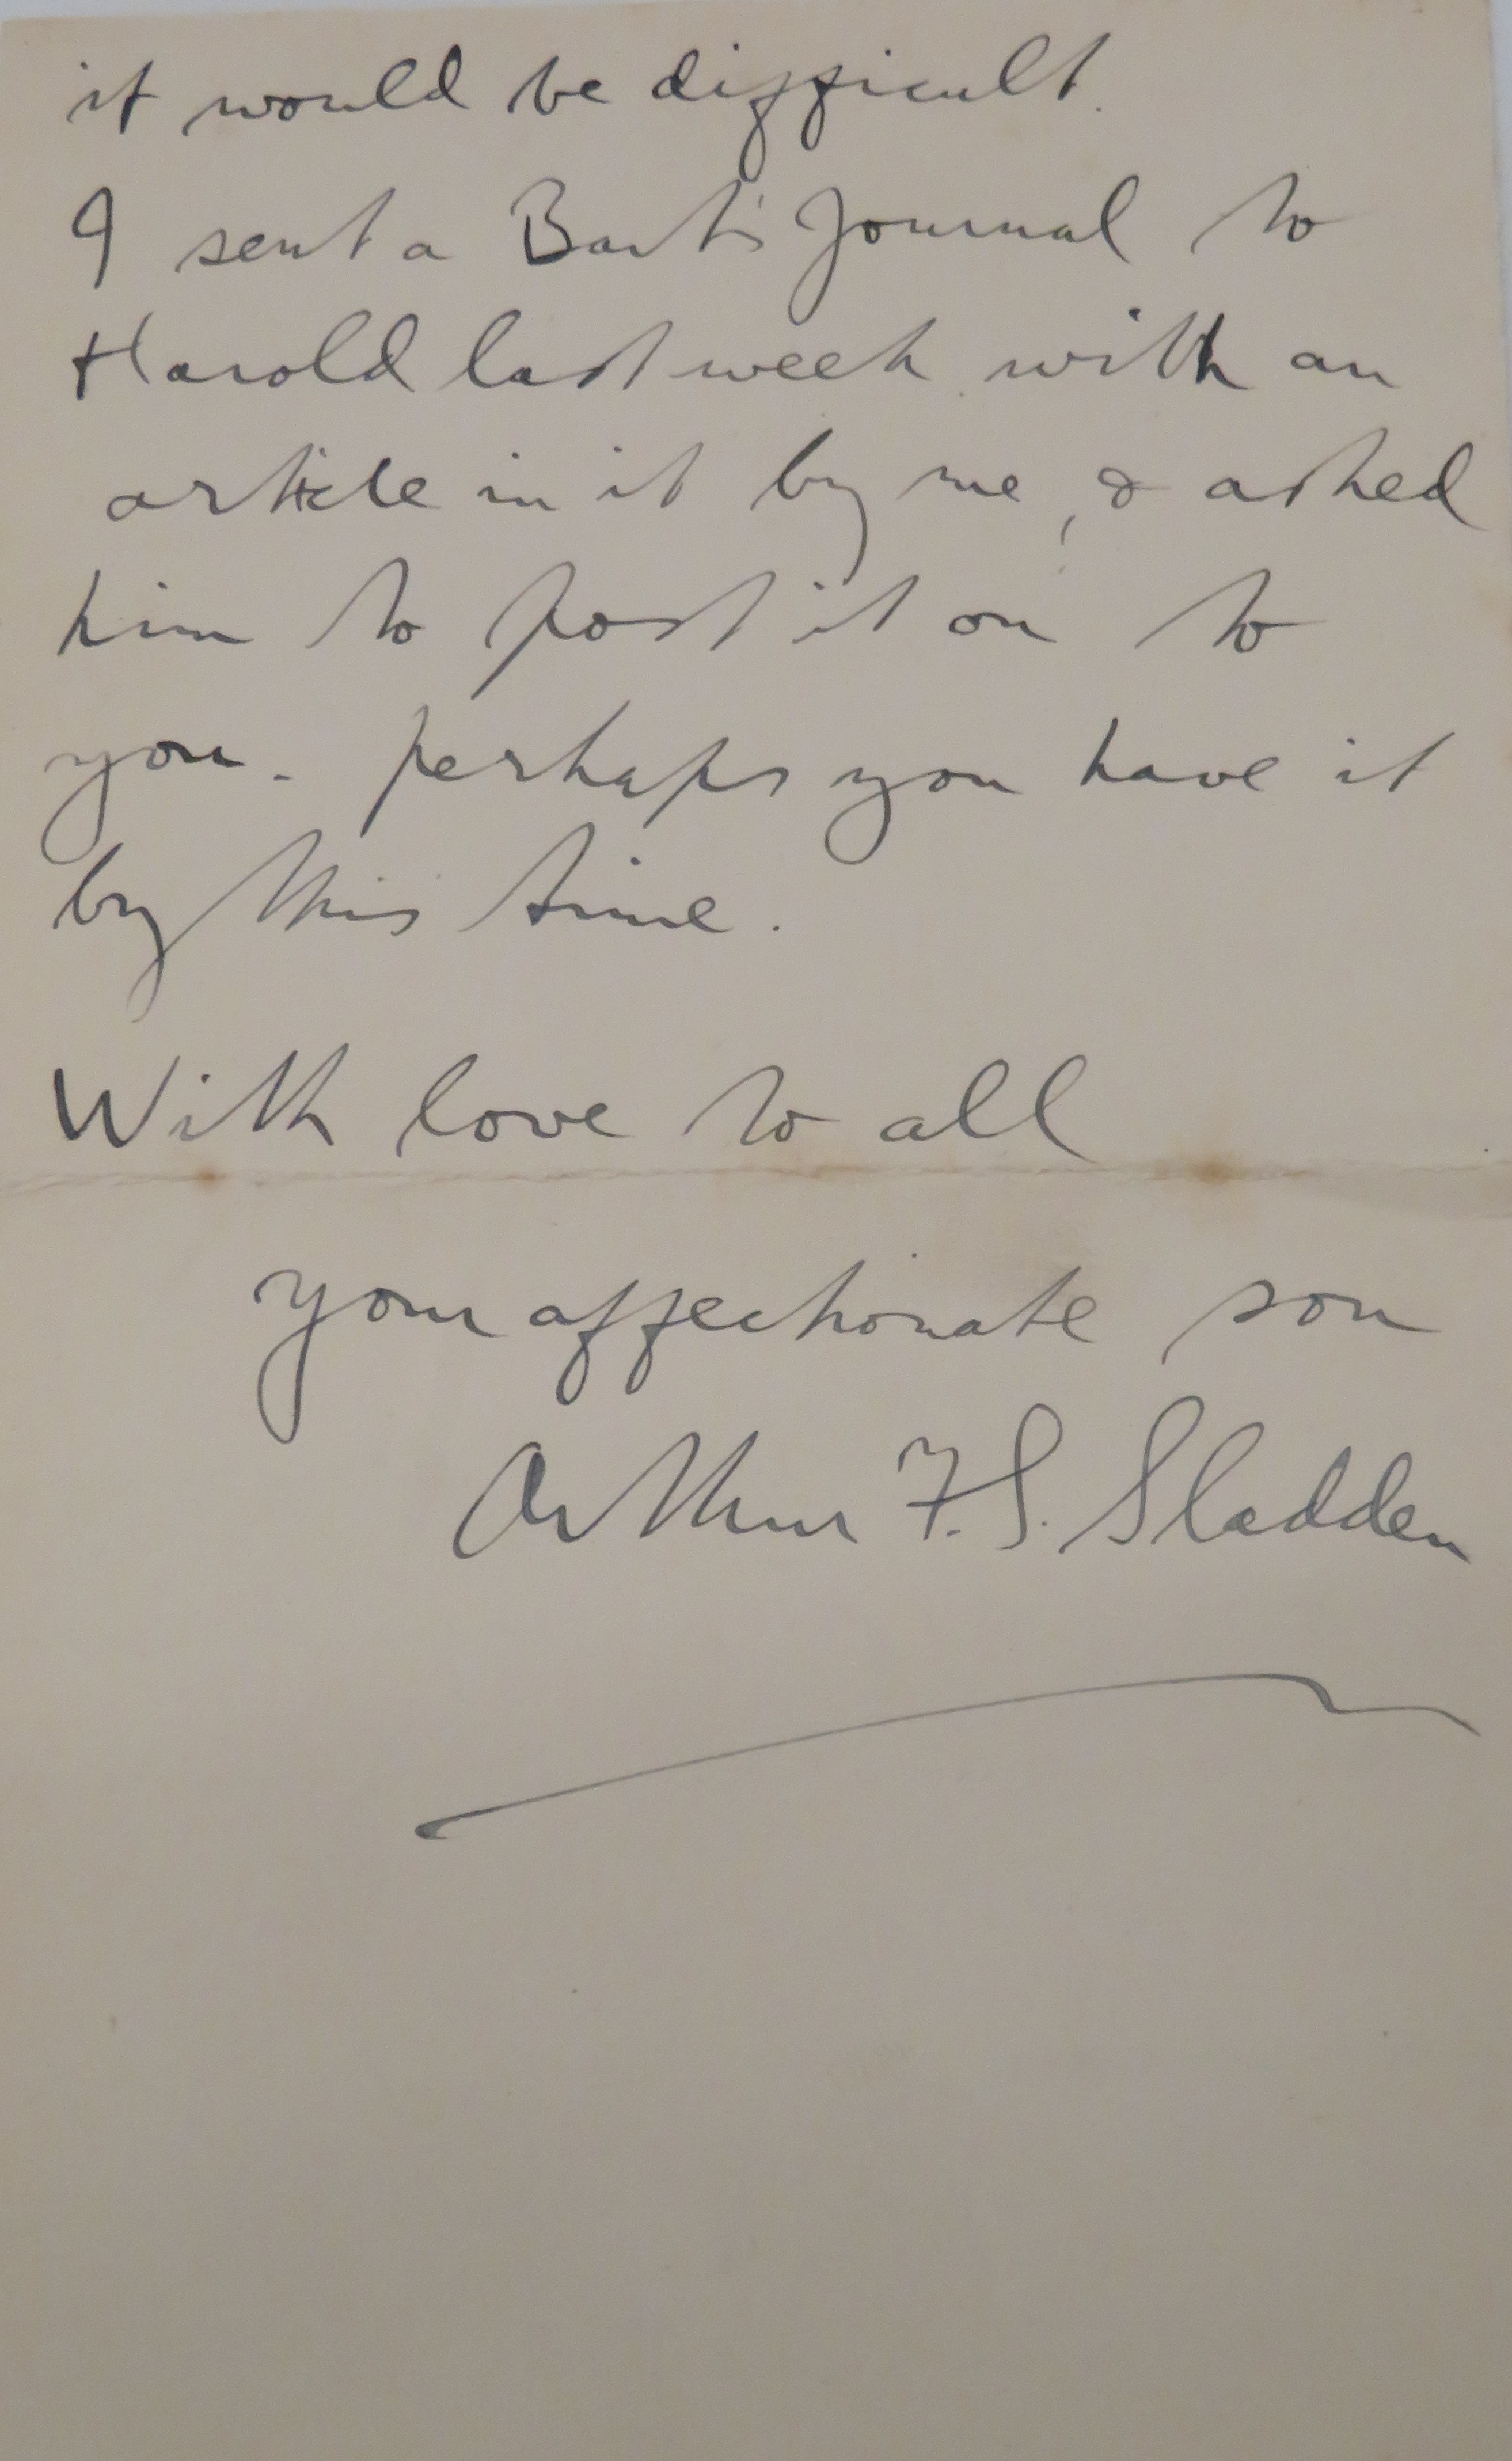 it would be difficult.
I sent a Bart's Journal to
Harold last week with an
article in it by me, & asked
him to post it on to
you - perhaps you have it
by this time.
With love to all
your affectionate son
Arthur F.S. Sladden